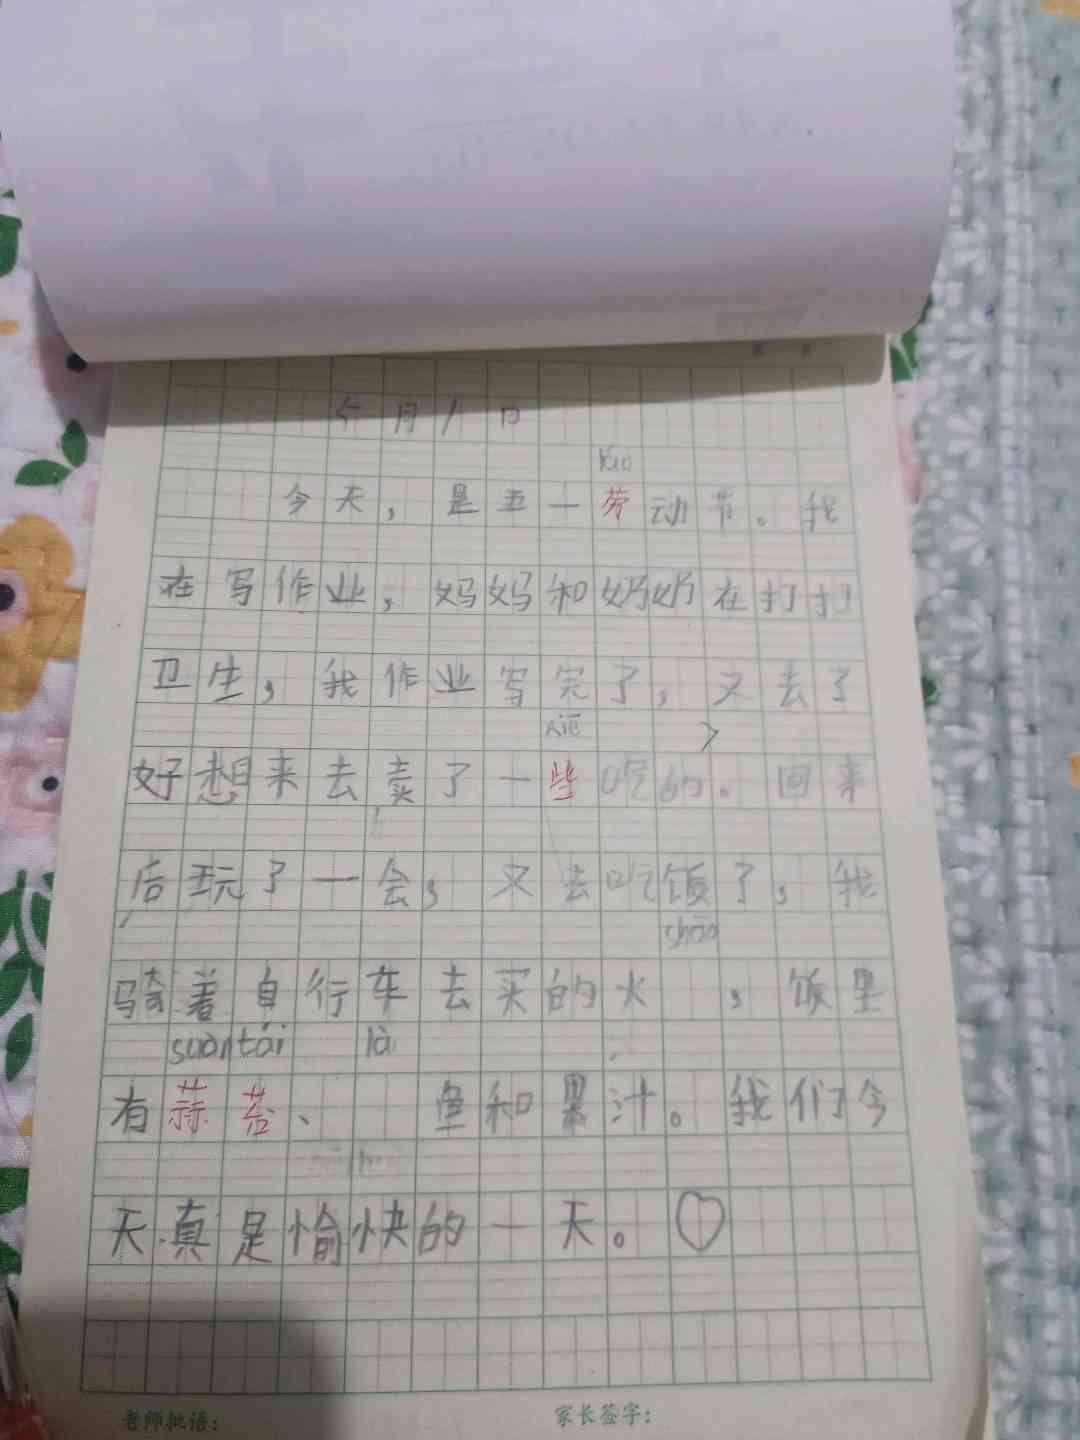 5月1日
láo
今天，是五一劳动节。我
在写作业，妈妈和奶奶在打扫
卫生，我作业写完了，又去了
xiē
好想来去卖了一些吃的。回来
后玩了一会，又去吃饭了，我
shāo
骑着自行车去买的火，饭里
suàn tái là
有蒜苔、鱼和果汁。我们今
天真是愉快的一天。♡
老师批语：
家长签字：